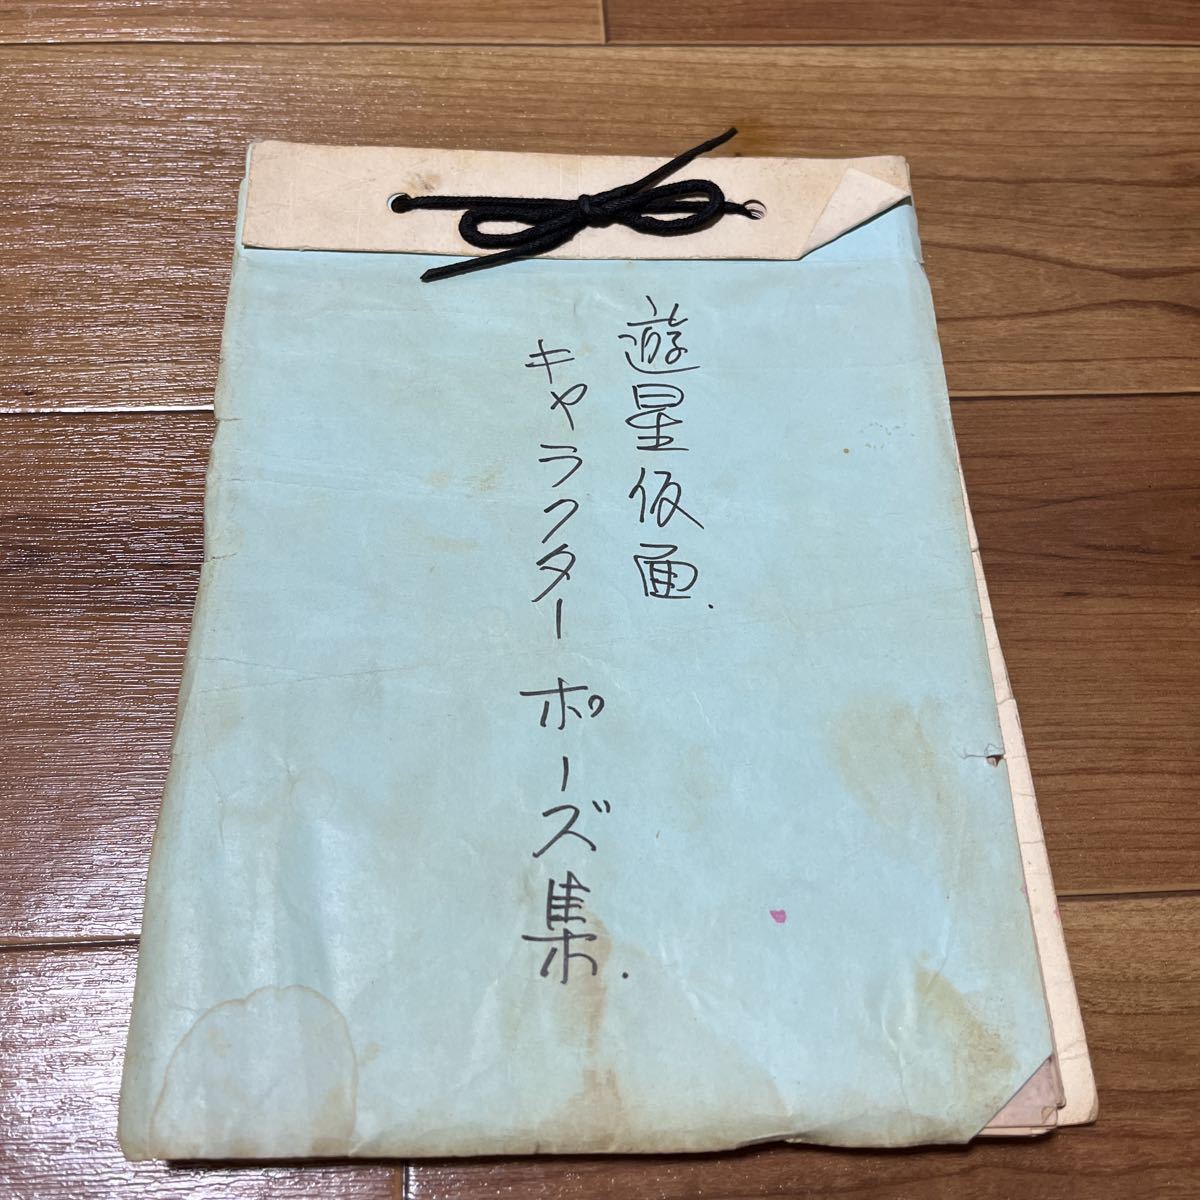 遊星仮面.
キャラクター ポーズ集.